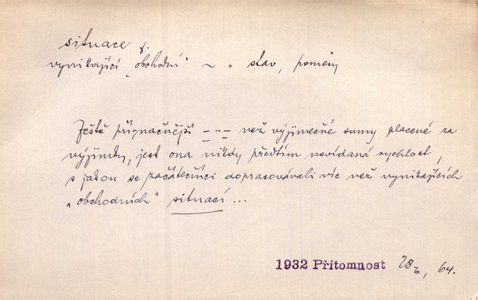 situace f.
vynikající „obchodní“ ~ = stav, poměry
Ještě příznačnější -..- než výjimečné sumy placené za
výjimky, jest ona nikdy předtím nevídaná rychlost,
s jakou se začátečníci dopracovávali víc než vynikajících
„obchodních“ situací...
1932 Přítomnost 28, 64.